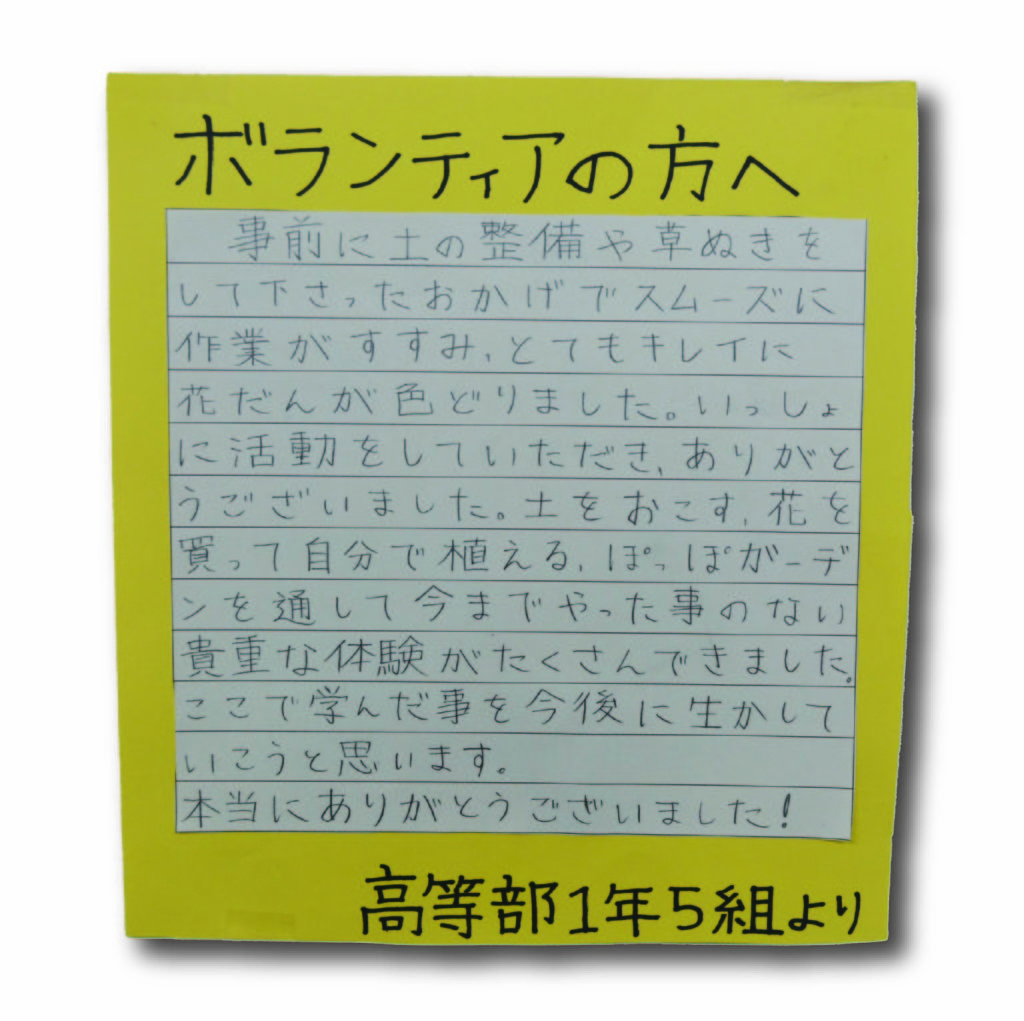 ボランティアの方へ
事前に土の整備や草ぬきを
して下さったおかげでスムーズに
作業がすすみ、とてもキレイに
花だんが色どりました。いっしょ
に活動をしていただき、ありがと
うございました。土をおこす、花を
買って自分で植える、ぽっぽガーデ
ンを通して今までやった事のない
貴重な体験がたくさんできました。
ここで学んだ事を今後に生かして
いこうと思います。
本当にありがとうございました!
高等部1年5組より